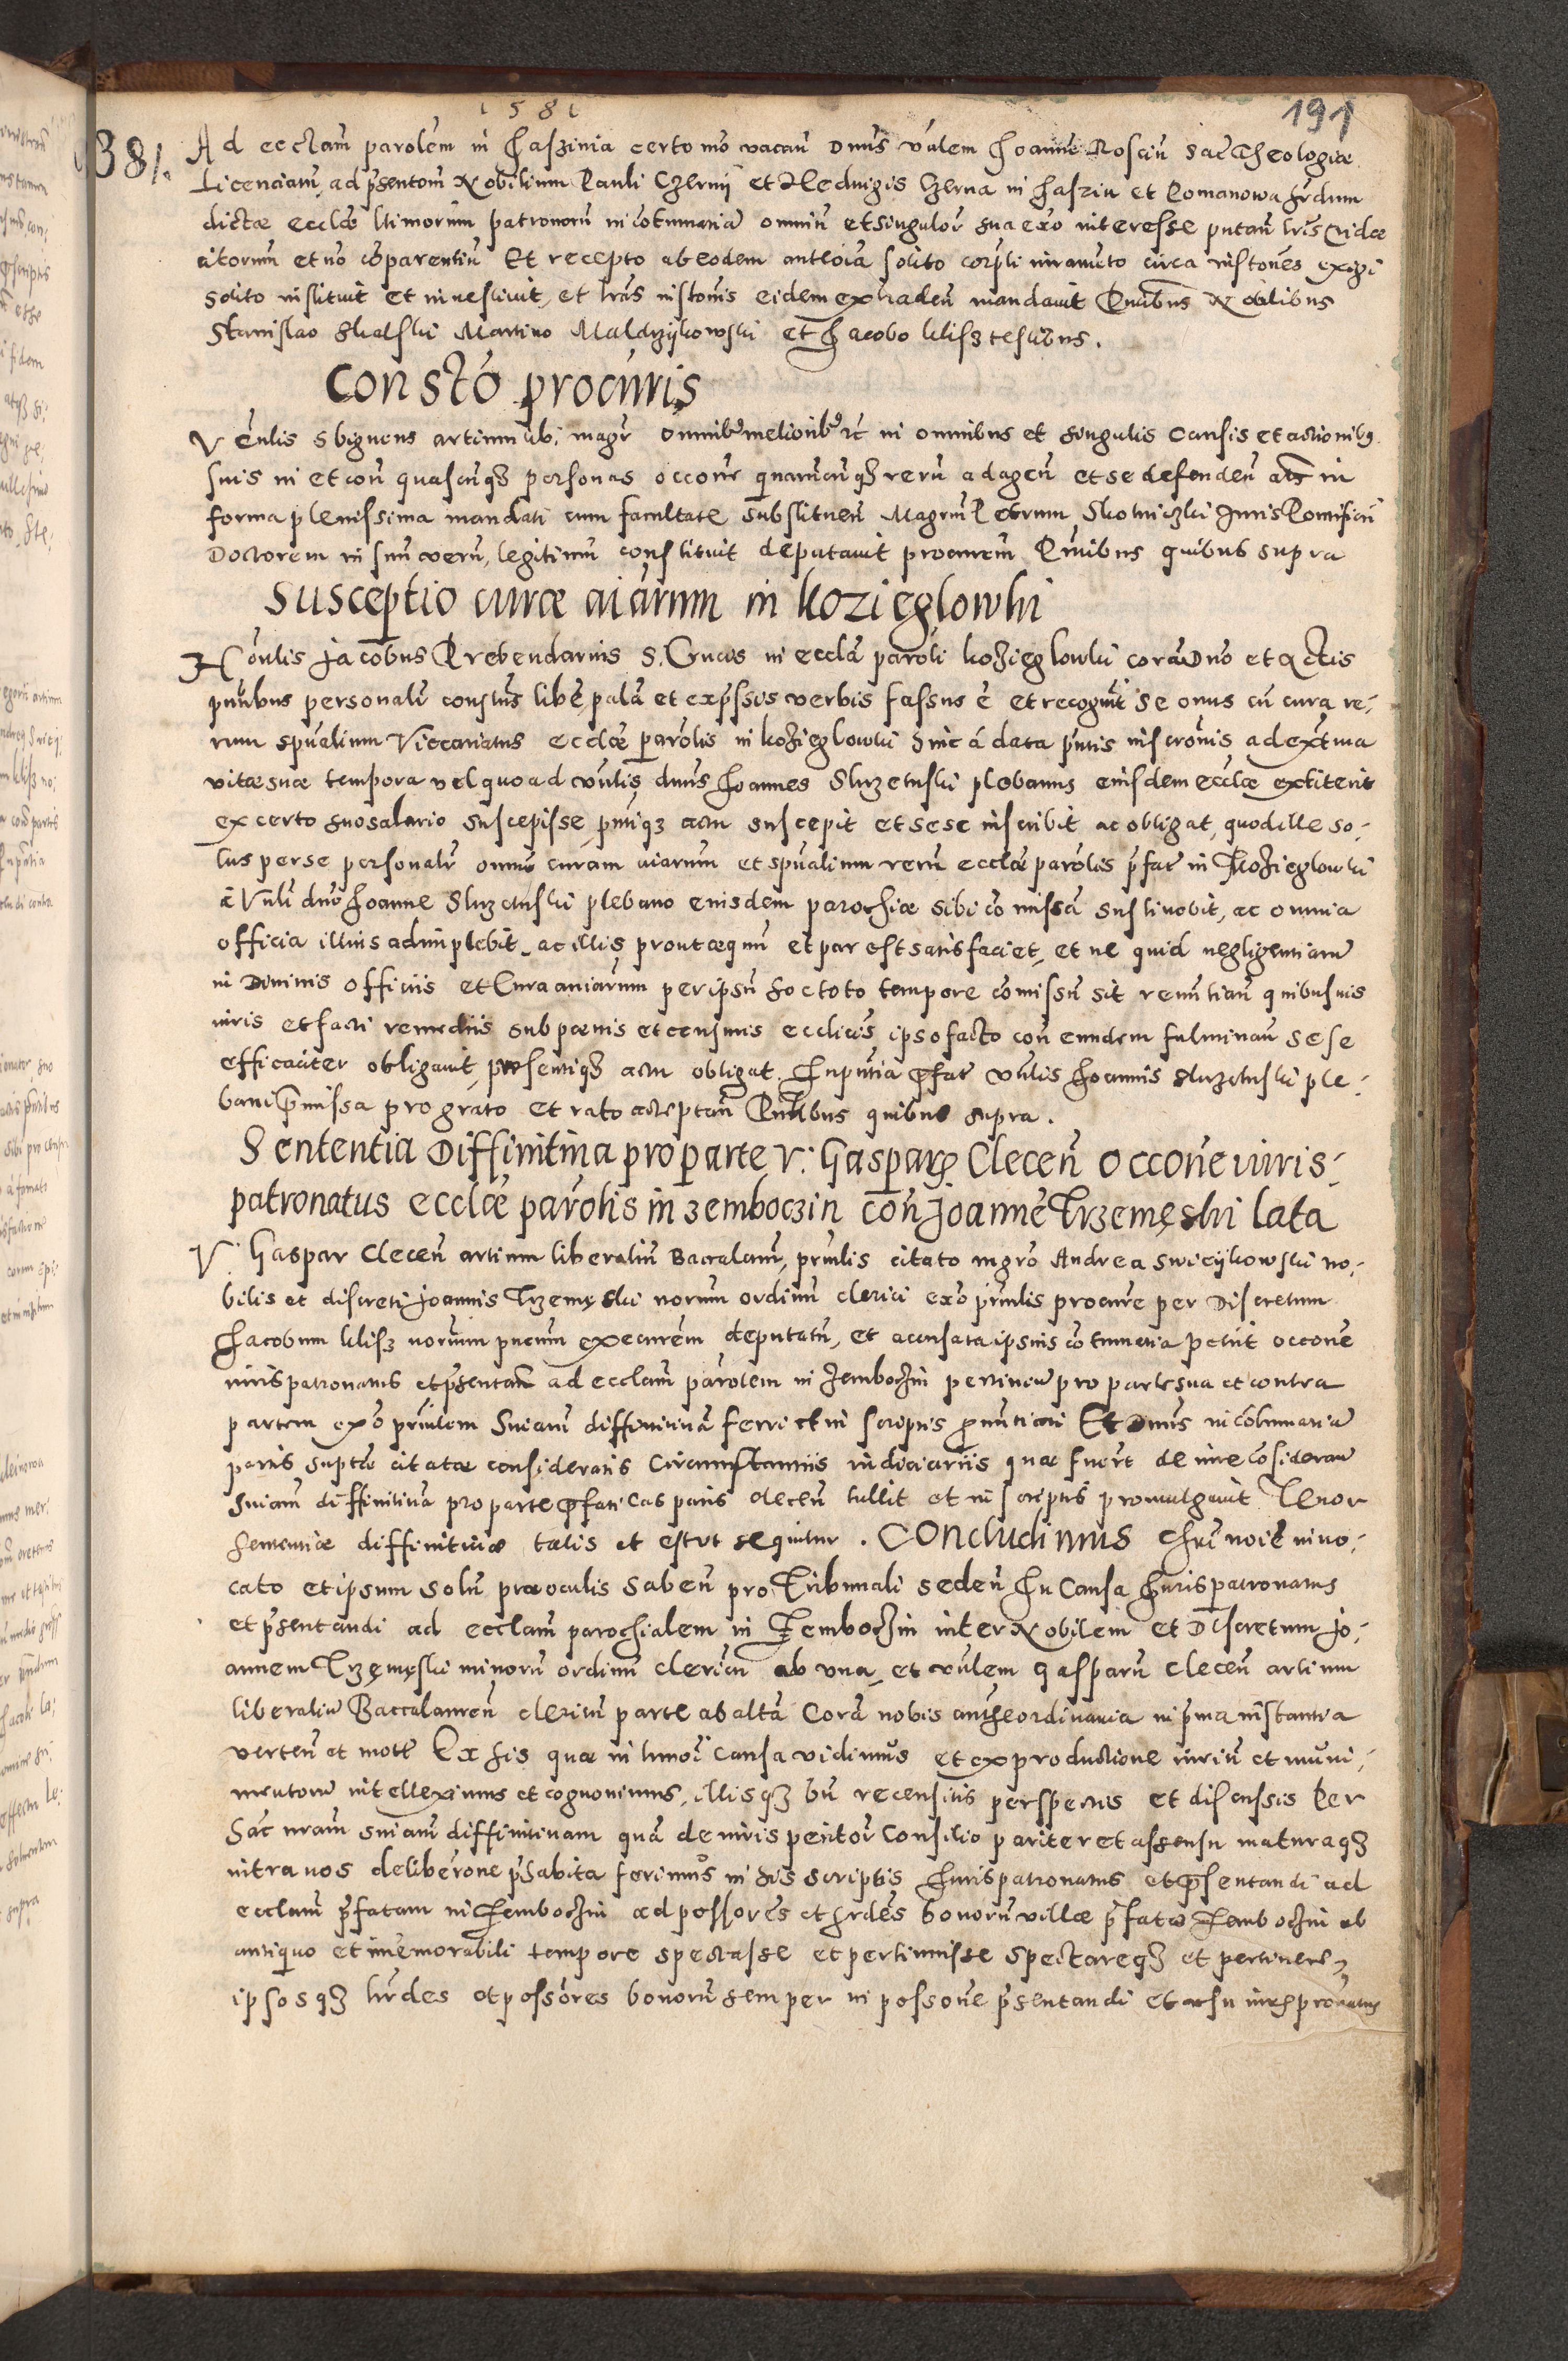 1581
191
381.
Ad ecclam parolem in Jaszinia certo mo vacan Dnus vnlem Joannem Roscium Sac Theologiae
Licenciam, ad pnsentom Nobilium Pauli Czernij et Hedwigis Czerna in Jaszin et Romanowa hrdum
dictae ecclae ltimorum patronorum in cotumatia omniu et singulor sua exo interesse putan lris
citorum et no coparentiu Et recepto ab eodem anteoia solito corpli iuramto circa instones exigi
solito instituit et inuestiuit, et lras instonis eidem extraden mandauit Pntibus Nobilibus
Stanislao Skalski Martino Maldrzykowski et Jacobo klisz testibus.
Consto procuris
Venlis Sbigneus artium lib: magr omnibus melioribus etc in omnibus et singulis causis et actionibus
suis in et con quascunqz personas occone quarumcunqz reru ad agen et se defenden ac in
forma plenissima mandati cum facultate substituen Magrum Petrum Skotniczki Iuris Pontificii
Doctorem in suu veru, legitimu constituit deputauit procurem Pntibus quibus supra
Susceptio curae aiarum in kozieglowki
Honlis Jacobus Prebendarius S. Crucis in eccla paroli kozieglowki cora Dno et Actis
pntibus personalr constus libe, pala et expssis verbis fassus e et recognit se onus cu cura re-
rum spualium Viccariatus ecclae parolis in kozieglowki hinc a data pntis inscronis ad extma
vitae suae tempora vel quoad vnlis dnus Joannes Sluzewski plebanus eiusdem ecclae extiterit
ex certo suo salario suscepisse, pntiqz actu suscepit et sese inscribit ac obligat, quod ille so-
lus per se personalr omne curam aiarum et spualium reru ecclae parolis pfat in kozieglowki
a Vnli dno Joanne Sluzewski plebano eiusdem parochiae sibi comissa sustinebit, ac omnia
officia illius adimplebit, ac illis prout aequu et par est satisfaciet, et ne quid negligentiaru
in Diuinis officiis et Cura aniarum per ipsu hoc toto tempore comissu sit renuntian quibusuis
iuris et facti remediis sub poenis et censuris ecclicis ipso facto con eundem fulminan sese
efficaciter obligauit, praesentiqz actu obligat. In pntia pfat vnlis Joannis Sluzewski ple-
bani pmissa pro grato et rato acceptan Pntibus quibus supra.
Sententia Diffinitiua pro parte V: Gasparis Clecen occone iuris-
patronatus ecclae parolis in zemboczin con Joanne Trzemęski lata
V: Gaspar Clecen artium liberaliu Baccalaur, prnlis citato mgro Andrea Swiczykowski no-
bilis et discreti Joannis Trzemęski norum ordinu clerici exo prnlis procure per Discretum
Jacobum klisz norum pncum execurem deputatu, et accusata ipsius cotumatia petiit occone
iurispatronatus et psentan ad ecclam parolem in Zemboczin pertinen pro parte sua et contra
partem exo prnlem Sniam diffinitiua ferri et in scriptis pnuntiari Et Dnus in cotumatia
partis supte citatae consideratis circumstantiis iudiciariis quae fuert de iure cosideran
Sniam diffinitiua pro parte pfati Casparis Clecen tullit et in scriptis promulgauit Tenor
sententiae diffinitiuae talis et est vt sequitur. Concludimus Chri noie inuo-
cato et ipsum solu prae oculis haben pro Tribunali seden In Causa Iurispatronatus
et psentandi ad ecclam parochialem in Zemboczin inter Nobilem et Discretum Jo-
annem Trzemęski minoru ordinu clericu ab vna, et vnlem Gasparu Clecen artium
liberaliu Baccalaureu clericu parte ab alta Cora nobis anthe ordinaria in pma instantia
verten et mott Ex his quae in hmoi causa vidimus et ex productione iuriu et muni-
mentoru intelleximus et cognouimus, illisqz bn recensitis perspectis et discussis Per
hac nram sniam diffinitiuam qua de iuris peritor consilio pariter et assensu maturaqz
intra nos deliberone phabita ferimus in his scriptis Iurispatronatus et psentandi ad
ecclam pfatam in Zemboczin ad possores et hrdes bonoru villae pfatae Zemboczin ab
antiquo et imemorabili tempore spectasse et pertinuisse spectareqz et pertinere,
ipsosqz hrdes et possores bonoru semper in possone psentandi et